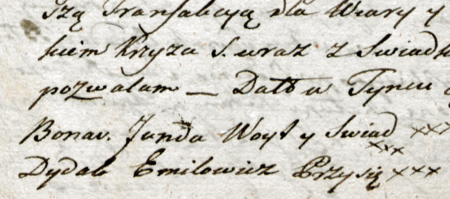 szą Transakcyą dla Wiary y
kiem Krzyża S. wraz z Swiadk
pozwalam — Datt w Tyncu
Bonav. Junda Woyt y Swiad xxx
xxx
Dydak Emilowicz Przysię xxx